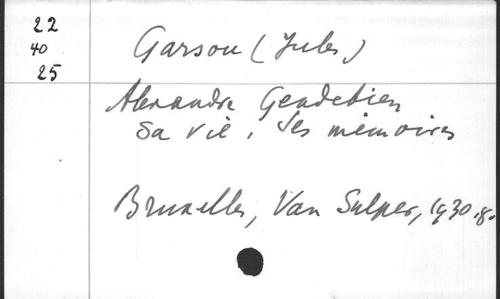 22
40
25
Garsou (Jules)
Alexandre Gendebien
Sa vie, Ses mémoires
Bruxelles, Van Sulper, 1930.8.